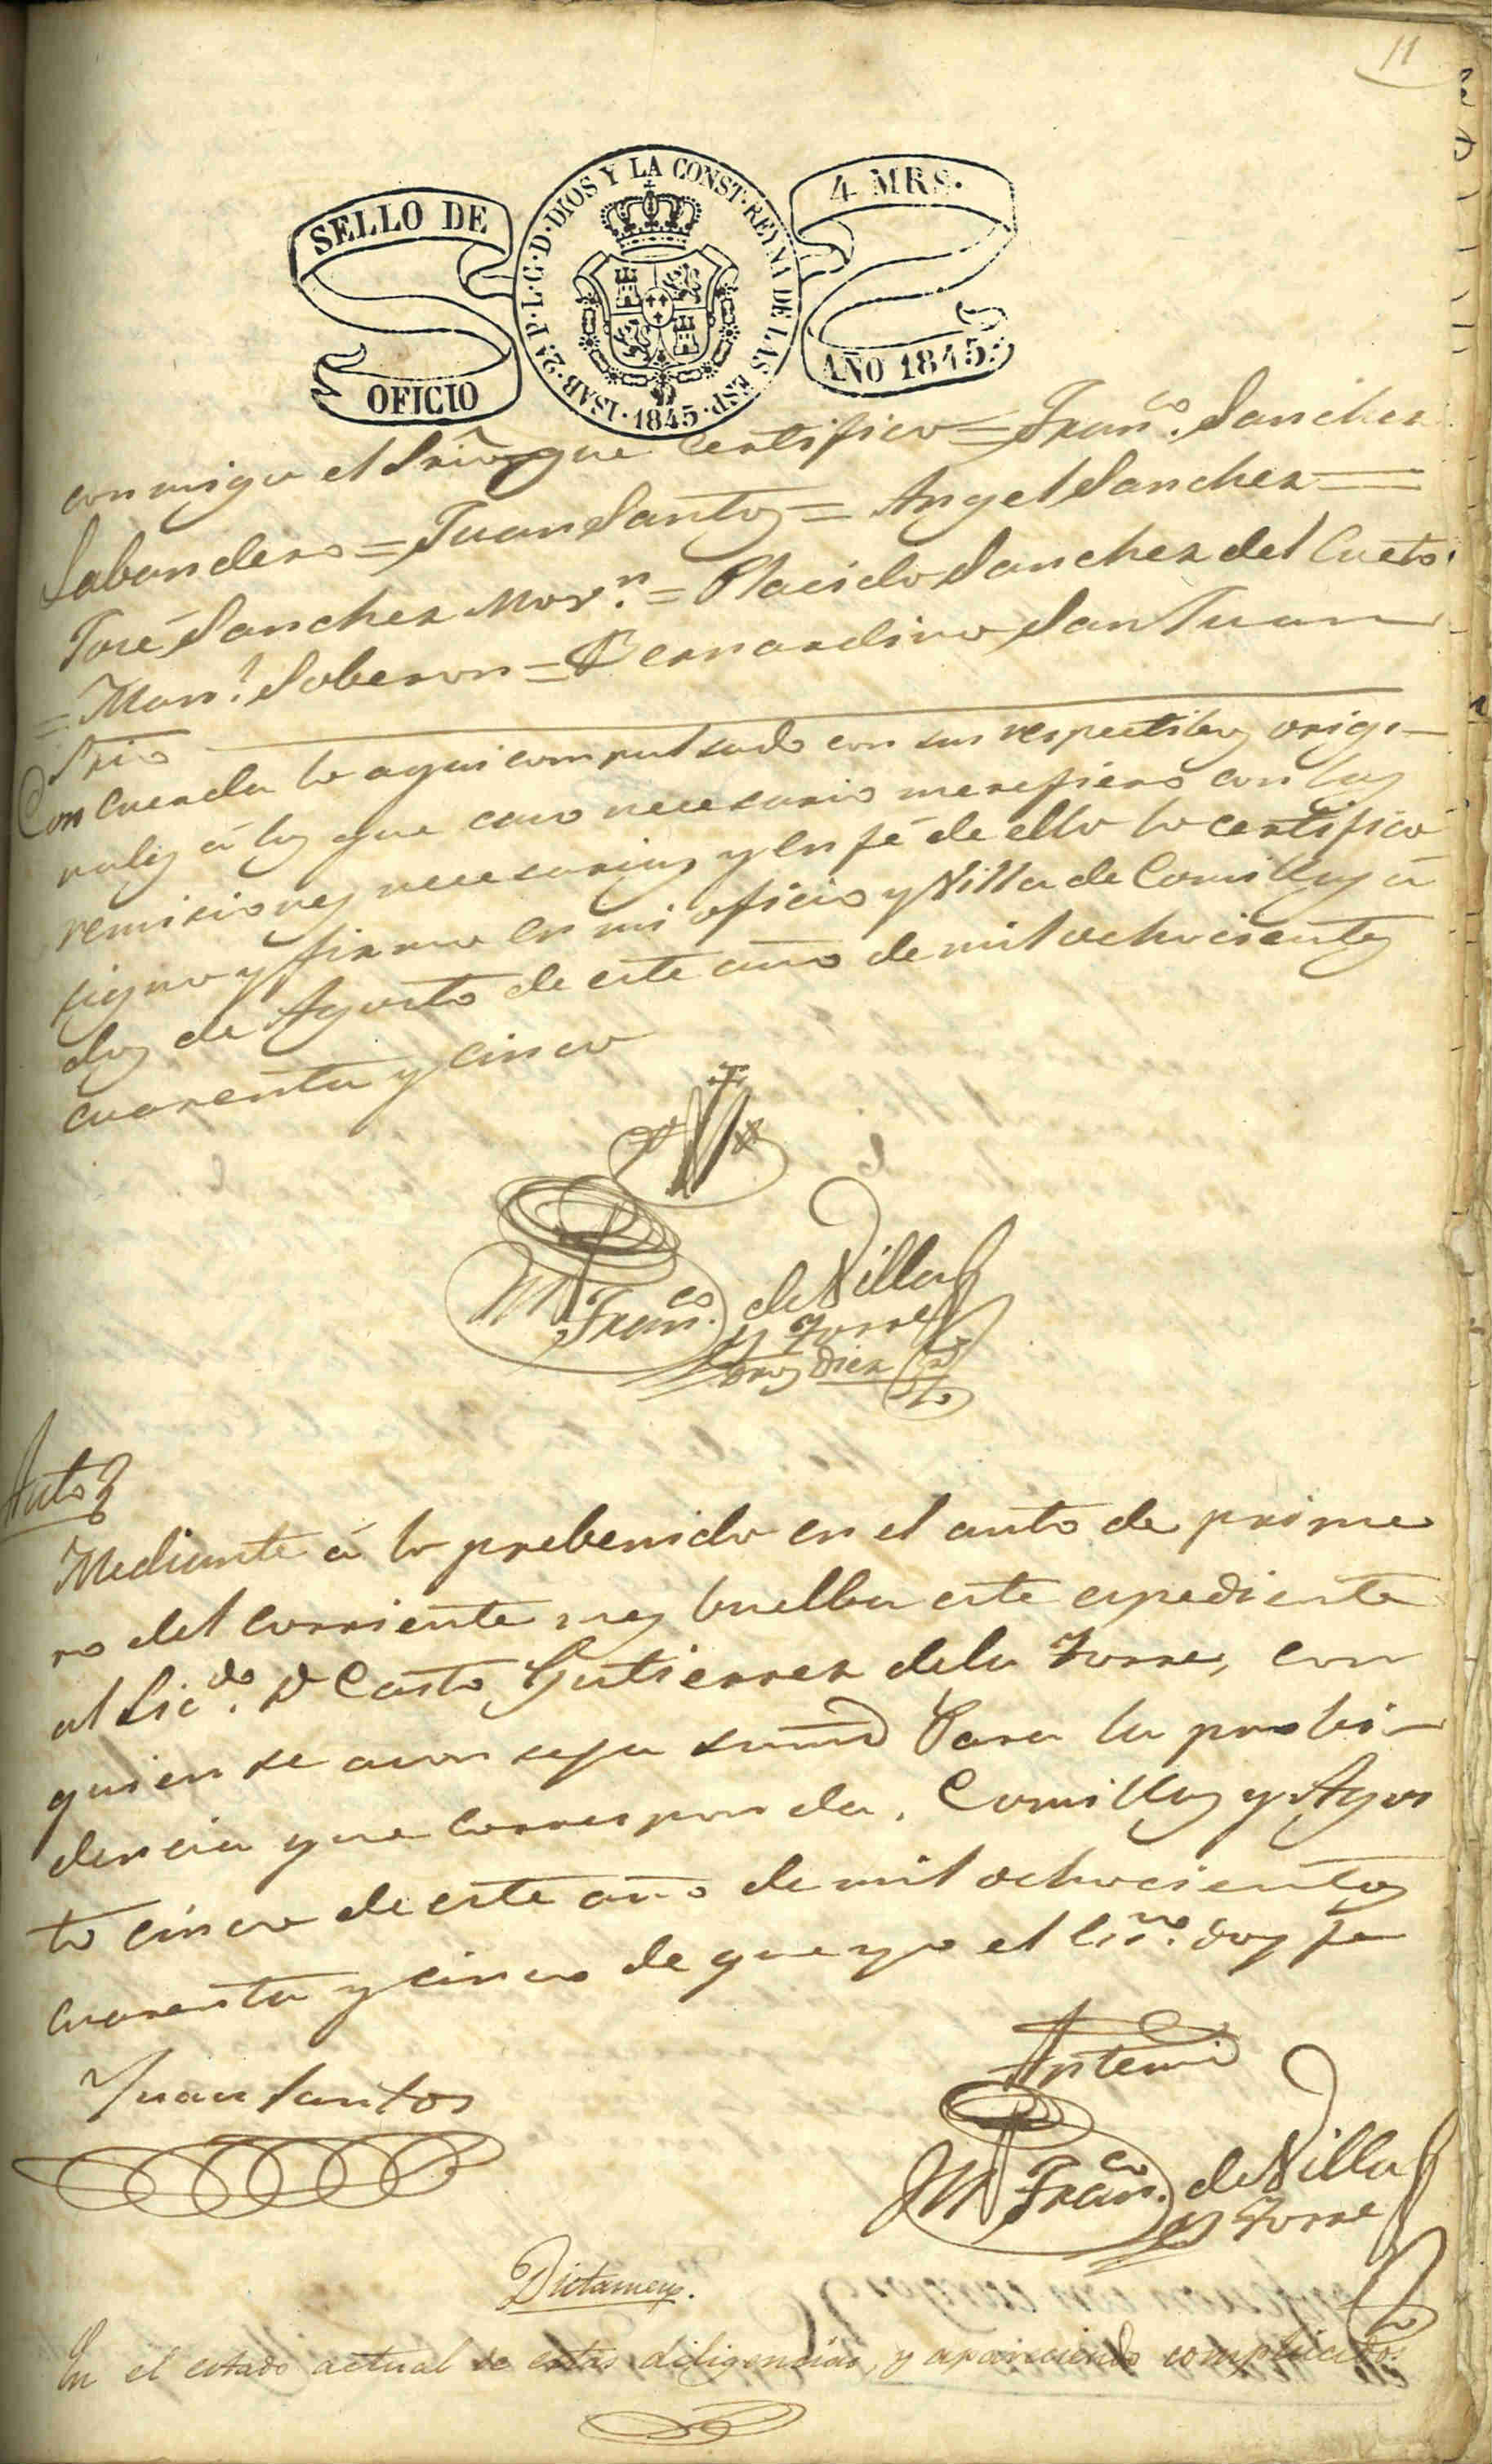 11
SELLO DE
OFICIO
ISAB. 2ª P. L. G. D. DIOS Y LA CONST. REYNA DE LAS ESP. 1845.
4 MRS.
AÑO 1845.
conmigo el Srio que certifico = Franco. Sanchez
Labandero = Juan Santos = Angel Sanchez =
José Sanchez Morn. = Placido Sanchez del Cueto
= Manl. Soberon = Bernardino San Juan
Srio
Concuerda lo aqui compulsado con sus respectibos origi-
nales á los que caso necesario me refiero con las
remisiones necesarias, y en fé de ello lo certifico
signo y firmo en mi oficio y Villa de Comillas á
dos de Agosto de este año de mil ochocientos
cuarenta y cinco
Franco. de Villa
y Torre
Dros diez
Auto
Mediante á lo prebenido en el auto de prime
ro del corriente mes buelba este espediente
al Licdo. Dn Casto Gutierrez dela Torre, con
quien se aconseja sumd Para la probi-
dencia que corresponda. Comillas y Agos
to cinco de este año de mil ochocientos
cuarenta y cinco de que yo el Essno. doy fe
Juan Santos
Antemi
Franco. de Villa
y Torre
Dictamen.
En el estado actual de estas diligencias, y apareciendo complicados